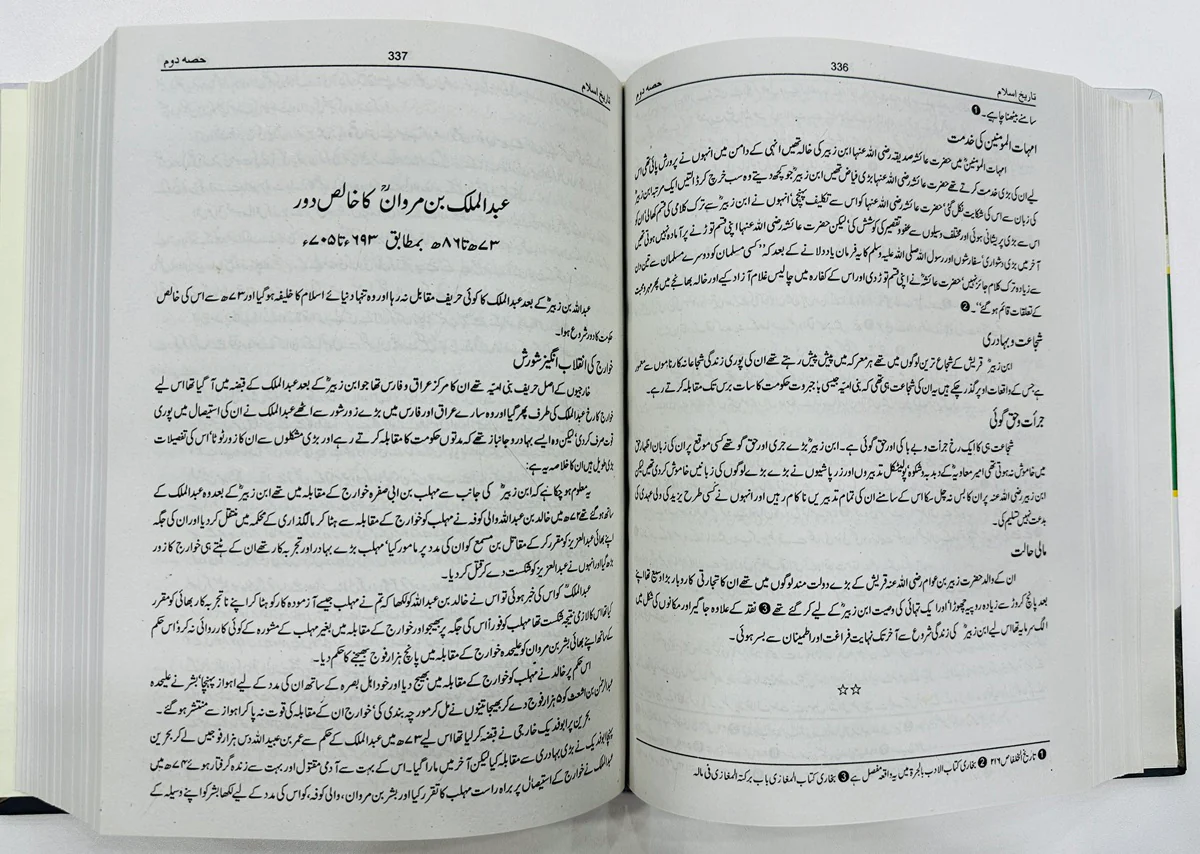 336
تاریخ اسلام
حصہ دوم
سامنے بیٹھنا چاہیے۔ ❶
امہات المومنین کی خدمت
امہات المومنینؓ میں حضرت عائشہ صدیقہ رضی اللہ عنہا ابن زبیر کی خالہ تھیں انہی کے دامن میں انہوں نے پرورش پائی تھی اس
لیے ان کی بڑی خدمت کرتے تھے حضرت عائشہ رضی اللہ عنہا بڑی فیاض تھیں ابن زبیرؓ جو کچھ دیتے وہ سب خرچ کر ڈالتیں ایک مرتبہ ابن زبیرؓ
کی زبان سے اس کی شکایت نکل گئی' حضرت عائشہ رضی اللہ عنہا کو اس سے تکلیف پہنچی' انہوں نے ابن زبیرؓ سے ترک کلامی کی قسم کھالی ان کو
اس سے بڑی پریشانی ہوئی اور مختلف وسیلوں سے عفو و تقصیر کی کوشش کی' لیکن حضرت عائشہ رضی اللہ عنہا اپنی قسم توڑنے پر آمادہ نہیں ہوتی تھیں
آخر میں بڑی دشواری' سفارشوں اور رسول اللہ صلی اللہ علیہ وسلم کا یہ فرمان یاد دلانے کے بعد کہ "کسی مسلمان کو دوسرے مسلمان سے تین دن
سے زیادہ ترک کلام جائز نہیں" حضرت عائشہؓ نے اپنی قسم توڑ دی اور اس کے کفارہ میں چالیس غلام آزاد کیے اور خالہ بھانجے میں پھر مہر و محبت
کے تعلقات قائم ہو گئے"۔ ❷
شجاعت و بہادری
ابن زبیرؓ قریش کے شجاع ترین لوگوں میں تھے ہر معرکہ میں پیش پیش رہتے تھے ان کی پوری زندگی شجاعانہ کارناموں سے معمور
ہے جس کے واقعات اوپر گذر چکے ہیں یہ ان کی شجاعت ہی تھی کہ بنی امیہ جیسی باجبروت حکومت کا سات برس تک مقابلہ کرتے رہے۔
جرأت و حق گوئی
شجاعت ہی کا ایک رخ جرأت و بے باکی اور حق گوئی ہے۔ ابن زبیرؓ بڑے جری اور حق گو تھے کسی موقع پر ان کی زبان اظہار حق
میں خاموش نہ ہوتی تھی امیر معاویہؓ کے دبدبہ و شکوہ' پولیٹیکل تدبیروں اور زر پاشیوں نے بڑے بڑے لوگوں کی زبانیں خاموش کر دی تھیں لیکن
ابن زبیر رضی اللہ عنہ پر ان کا بس نہ چل سکا اس کے سامنے ان کی تمام تدبیریں ناکام رہیں اور انہوں نے کسی طرح یزید کی ولی عہدی کی
بدعت نہیں تسلیم کی۔
مالی حالت
ان کے والد حضرت زبیر بن عوام رضی اللہ عنہ قریش کے بڑے دولت مند لوگوں میں تھے ان کا تجارتی کاروبار بڑا وسیع تھا اپنے
بعد پانچ کروڑ سے زیادہ روپیہ چھوڑا' اور ایک تہائی کی وصیت ابن زبیرؓ کے لیے کر گئے تھے ❸ نقد کے علاوہ جاگیر اور مکانوں کی شکل میں
الگ سرمایہ تھا اس لیے ابن زبیرؓ کی زندگی شروع سے آخر تک نہایت فراغت اور اطمینان سے بسر ہوئی۔
☆☆
❶ تاریخ الخلفاص ۲۱۶ ❷ بخاری کتاب الادب باب الہجرۃ میں یہ واقعہ مفصل ہے ❸ بخاری کتاب المغازی باب برکتہ المغازی فی مالہ
337
تاریخ اسلام
حصہ دوم
عبدالملک بن مروانؒ کا خالص دور
۷۳ھ تا ۸۶ھ بمطابق ۶۹۳ء تا ۷۰۵ء
عبداللہ بن زبیرؓ کے بعد عبدالملک کا کوئی حریف مقابل نہ رہا اور وہ تنہا دنیائے اسلام کا خلیفہ ہو گیا اور ۷۳ھ سے اس کی خالص
حکومت کا دور شروع ہوا۔
خوارج کی انقلاب انگیز شورش
خارجیوں کے اصل حریف بنی امیہ تھے ان کا مرکز عراق و فارس تھا جو ابن زبیرؓ کے بعد عبدالملک کے قبضہ میں آ گیا تھا اس لیے
خوارج کا رخ عبدالملک کی طرف پھر گیا اور وہ سارے عراق اور فارس میں بڑے زور شور سے اٹھے عبدالملک نے ان کی استیصال میں پوری
قوت صرف کر دی' لیکن وہ ایسے بہادر و جانباز تھے کہ مدتوں حکومت کا مقابلہ کرتے رہے اور بڑی مشکلوں سے ان کا زور ٹوٹا' اس کی تفصیلات
بڑی طویل ہیں ان کا خلاصہ یہ ہے:
یہ معلوم ہو چکا ہے کہ ابن زبیرؓ کی جانب سے مہلب بن ابی صفرہ خوارج کے مقابلہ میں تھے ابن زبیرؓ کے بعد وہ عبدالملک کے
ساتھ ہو گئے تھے ۷۲ھ میں خالد بن عبداللہ والی کوفہ نے مہلب کو خوارج کے مقابلہ سے ہٹا کر مالگذاری کے محکمہ میں منتقل کر دیا اور ان کی جگہ
اپنے بھائی عبدالعزیز کو مقرر کر کے مقاتل بن مسمع کو ان کی مدد پر مامور کیا' مہلب بڑے بہادر اور تجربہ کار تھے ان کے ہٹتے ہی خوارج کا زور
بڑھ گیا اور انہوں نے عبدالعزیز کو شکست دے کر قتل کر دیا۔
عبدالملکؒ کو اس کی خبر ہوئی تو اس نے خالد بن عبداللہ کو لکھا کہ تم نے مہلب جیسے آزمودہ کار کو ہٹا کر اپنے ناتجربہ کار بھائی کو مقرر
کیا تھا اس کا لازمی نتیجہ شکست تھا مہلب کو فوراً اس کی جگہ پر بھیجو اور خوارج کے مقابلہ میں بغیر مہلب کے مشورہ کے کوئی کارروائی نہ کرو' اس حکم
کے ساتھ اپنے بھائی بشر بن مروان کو علیحدہ خوارج کے مقابلہ میں پانچ ہزار فوج بھیجنے کا حکم دیا۔
اس حکم پر خالد نے مہلب کو خوارج کے مقابلہ میں بھیج دیا اور خود اہل بصرہ کے ساتھ ان کی مدد کے لیے اہواز پہنچا' بشر نے علیحدہ
عبدالرحمٰن بن اشعث کو ۵ ہزار فوج دے کر بھیجا تینوں نے مل کر مورچہ بندی کی' خوارج ان کے مقابلہ کی قوت نہ پا کر اہواز سے منتشر ہو گئے۔
بحرین پر ابوفدیک خارجی نے قبضہ کر لیا تھا اس لیے ۷۳ھ میں عبدالملک کے حکم سے عمر بن عبیداللہ دس ہزار فوجیں لے کر بحرین
پہنچا ابوفدیک نے بڑی بہادری سے مقابلہ کیا لیکن آخر میں مارا گیا۔ اس کے بہت سے آدمی مقتول اور بہت سے زندہ گرفتار ہوئے ۷۴ھ میں
عبدالملک نے خوارج کے استیصال پر براہ راست مہلب کا تقرر کیا اور بشر بن مروان، والی کوفہ، کو اس کی مدد کے لیے لکھا بشر کو اپنے وسیلہ کے